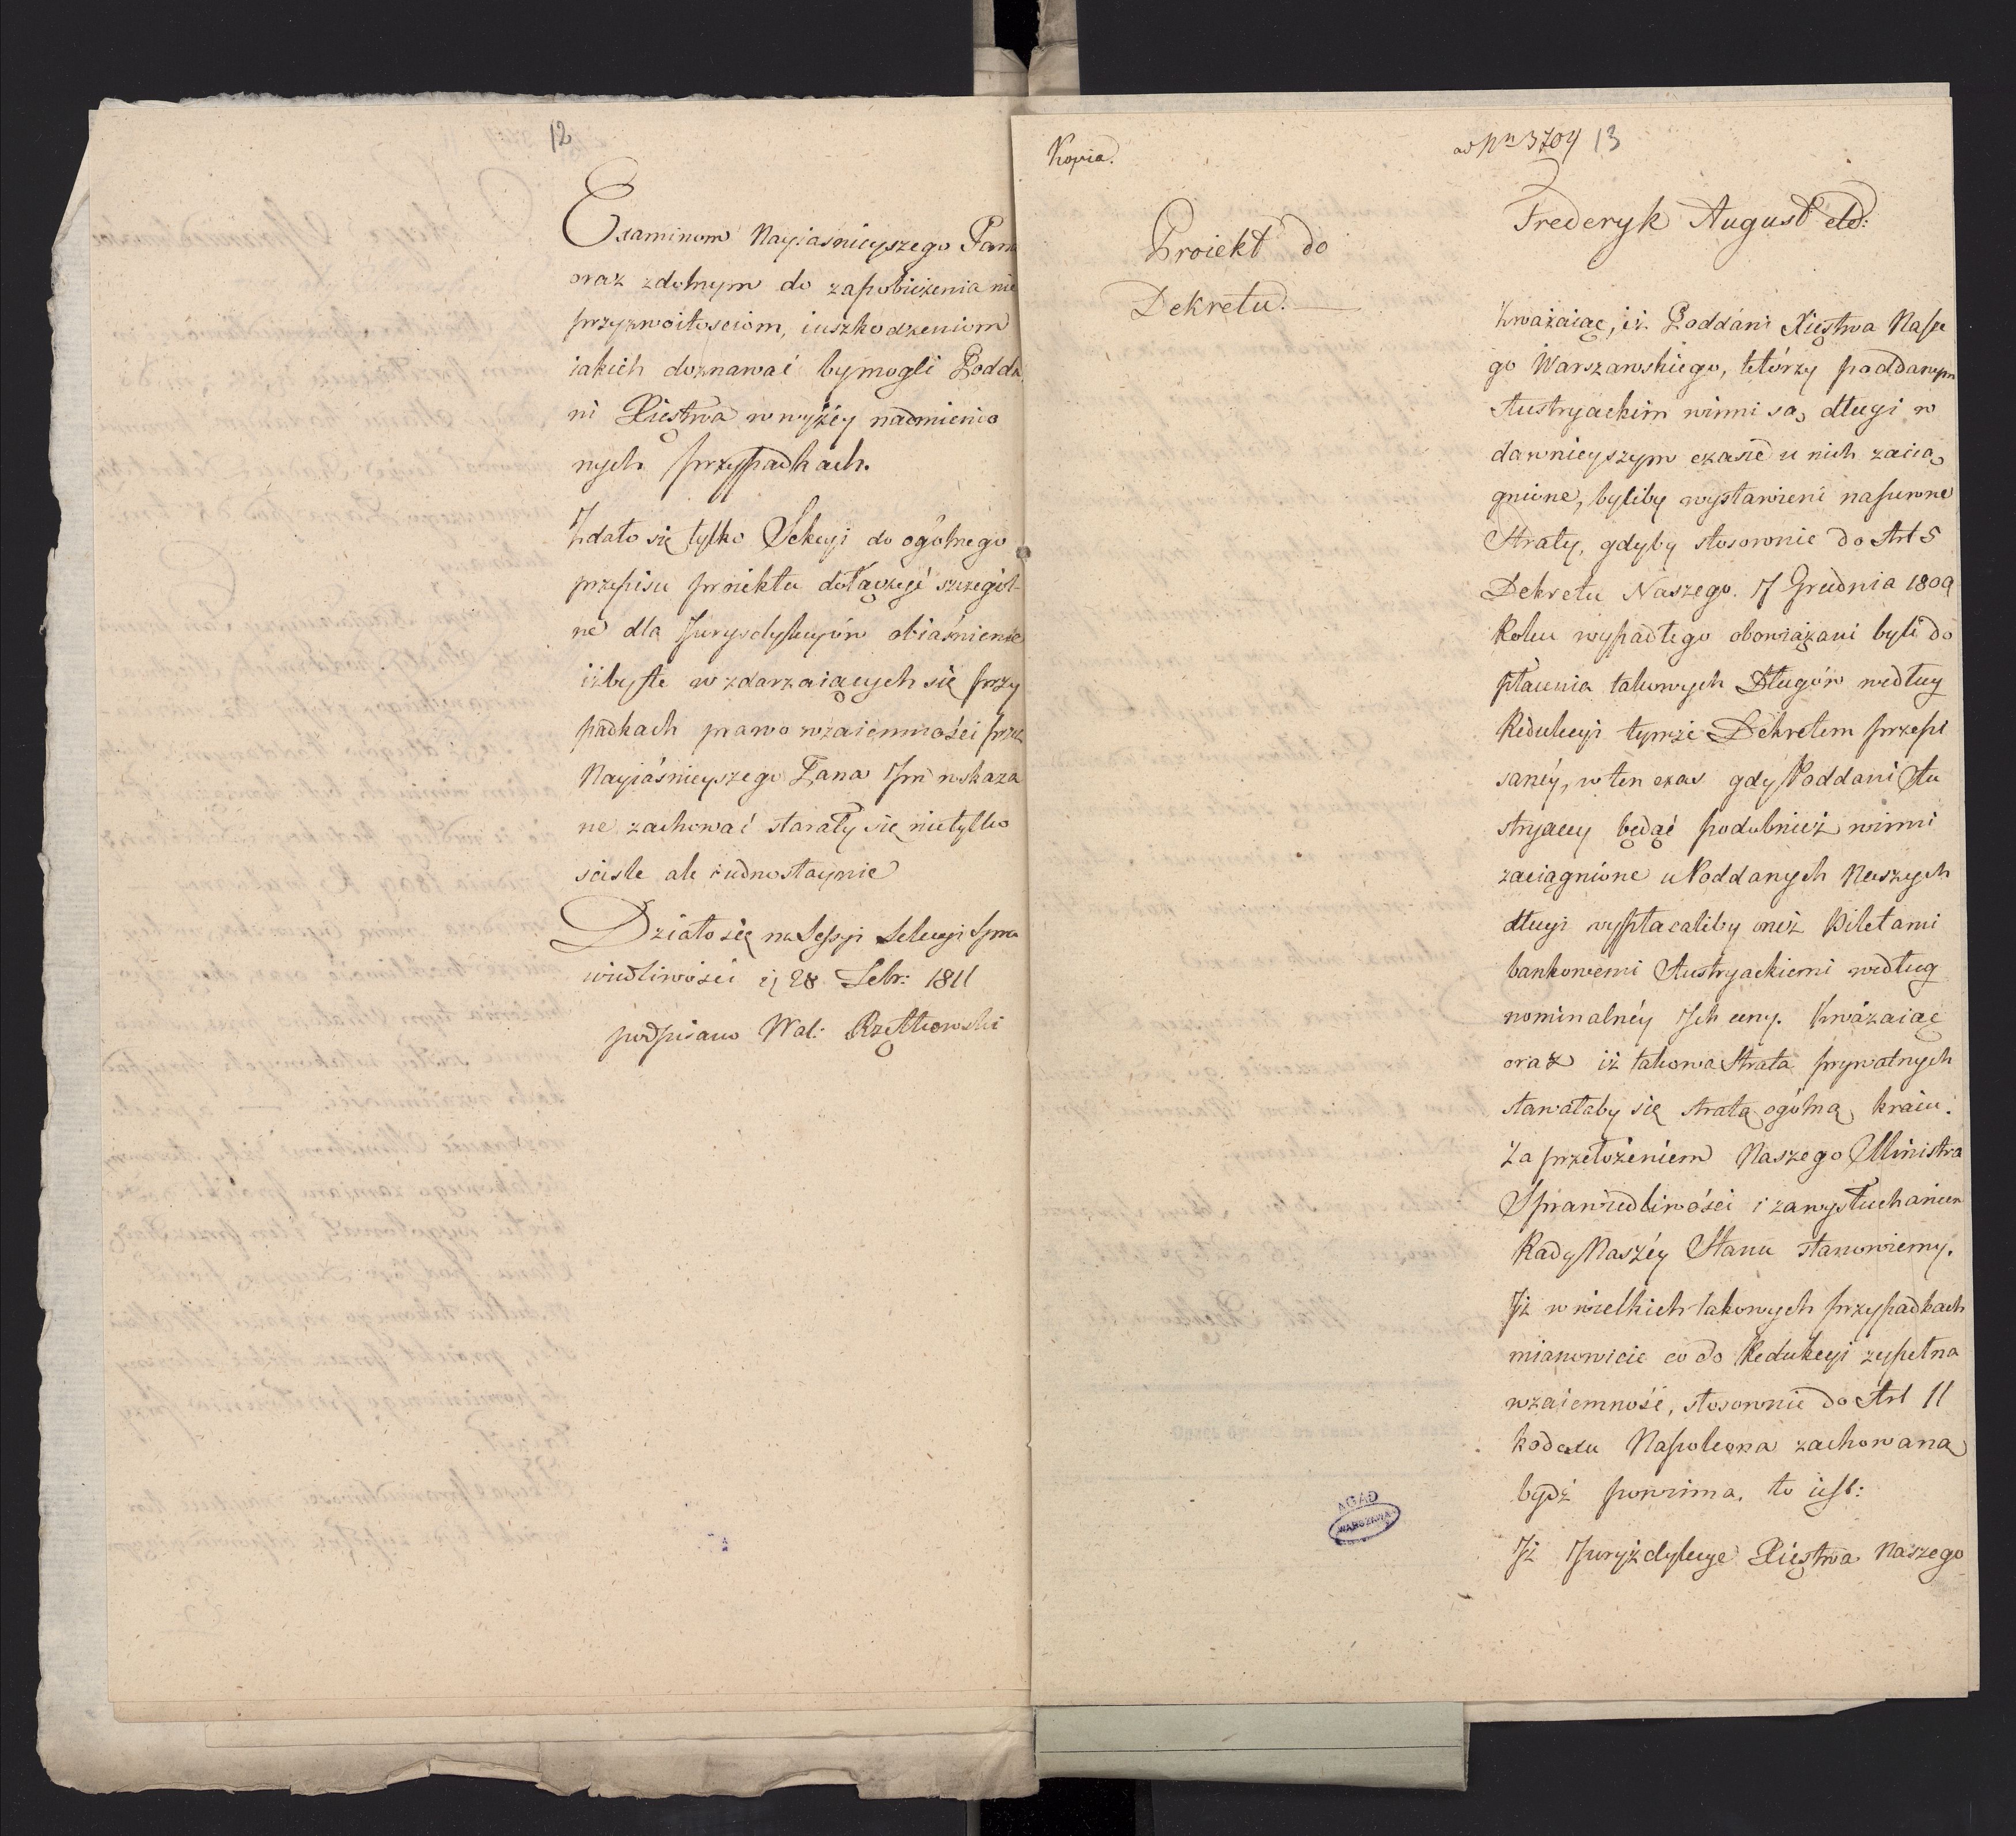 12
Examinom Nayiasnieyszego Pana
oraz zdolnym do zapobieżenia nie
przyzwoitosciom, iuszkodzeniom
iakich doznawać bymogli Podda
ni Xięstwa wwyżéy nadmienio
nych przypadkach.
Zdało się tylko Sekcyi do ogólnego
przepisu proiektu dołączyć szczegól-
ne dla Jurysdykcyów obiaśnienie
iżbyste w zdarzaiących się przy
padkach prawo wzaiemności przez
Nayiaśnieyszego Pana Jm wskaza
ne zachować starały się nietylko
scisle ale iednostaynie
Działo się na Sessyi Sekcyi Spra
wiedliwości dj 28 Febr: 1811
podpisano Wal: Rzętkowski
Kopia.
ad Nrn 3704 13
Proiekt do
Dekretu.
Frederyk August etc:
Zważaiąc, iż Poddani Xięstwa Nasze
go Warszawskiego, którzy poddanym
Austryackim winni są, długi w
dawnieyszym czasie u nich zacią
gnione, byliby wystawieni napewne
Straty, gdyby stosownie do Art 5
Dekretu Naszego 17 Grudnia 1809
Roku wypadłego obowiązani byli do
płacenia takowych Długów według
Redukcyi tymże Dekretem przepi
sanéy, w ten czas gdy Poddani Au
stryaccy będąć podobnież winni
zaciągnione u Poddanych Naszych
długi wypłacaliby oneż Biletami
bankowemi Austryackiemi według
nominalnéy Jch ceny. Zważaiąc
oraz iż takowa Strata prywatnych
stawałaby się stratą ogólną kraiu.
Za przełożeniem Naszego Ministra
Sprawiedliwości i zawysłuchaniem
Rady Naszéy Stanu stanowiemy.
Jż w wielkich takowych przypadkach
mianowicie co do Redukcyi zupełna
wzaiemność, stosownie do Art 11
kodexu Napoleona zachowana
bydź powinna, to iest:
Jż Juryzdykcye Xięstwa Naszego
AGAD
WARSZAWA